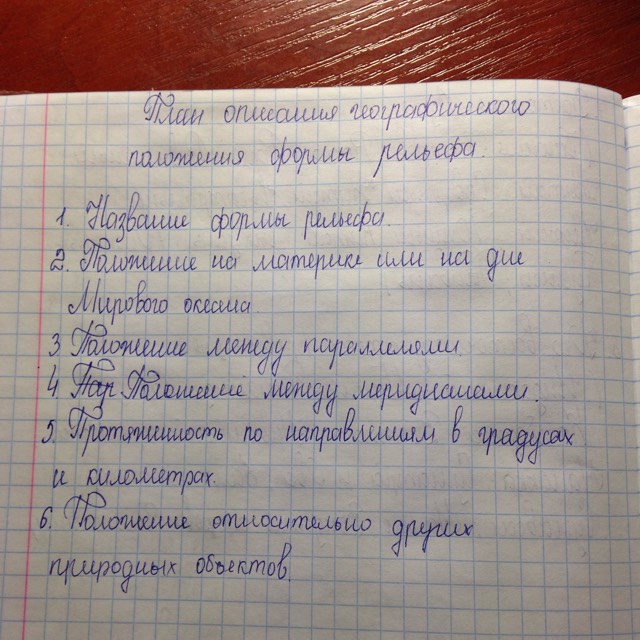 План описания географического
положения формы рельефа.
1. Название формы рельефа.
2. Положение на материке или на дне
Мирового океана
3 Положение между параллелями.
4. Пар Положение между меридианами.
5. Протяженность по направлениям в градусах
и километрах.
6. Положение относительно других
природных объектов.